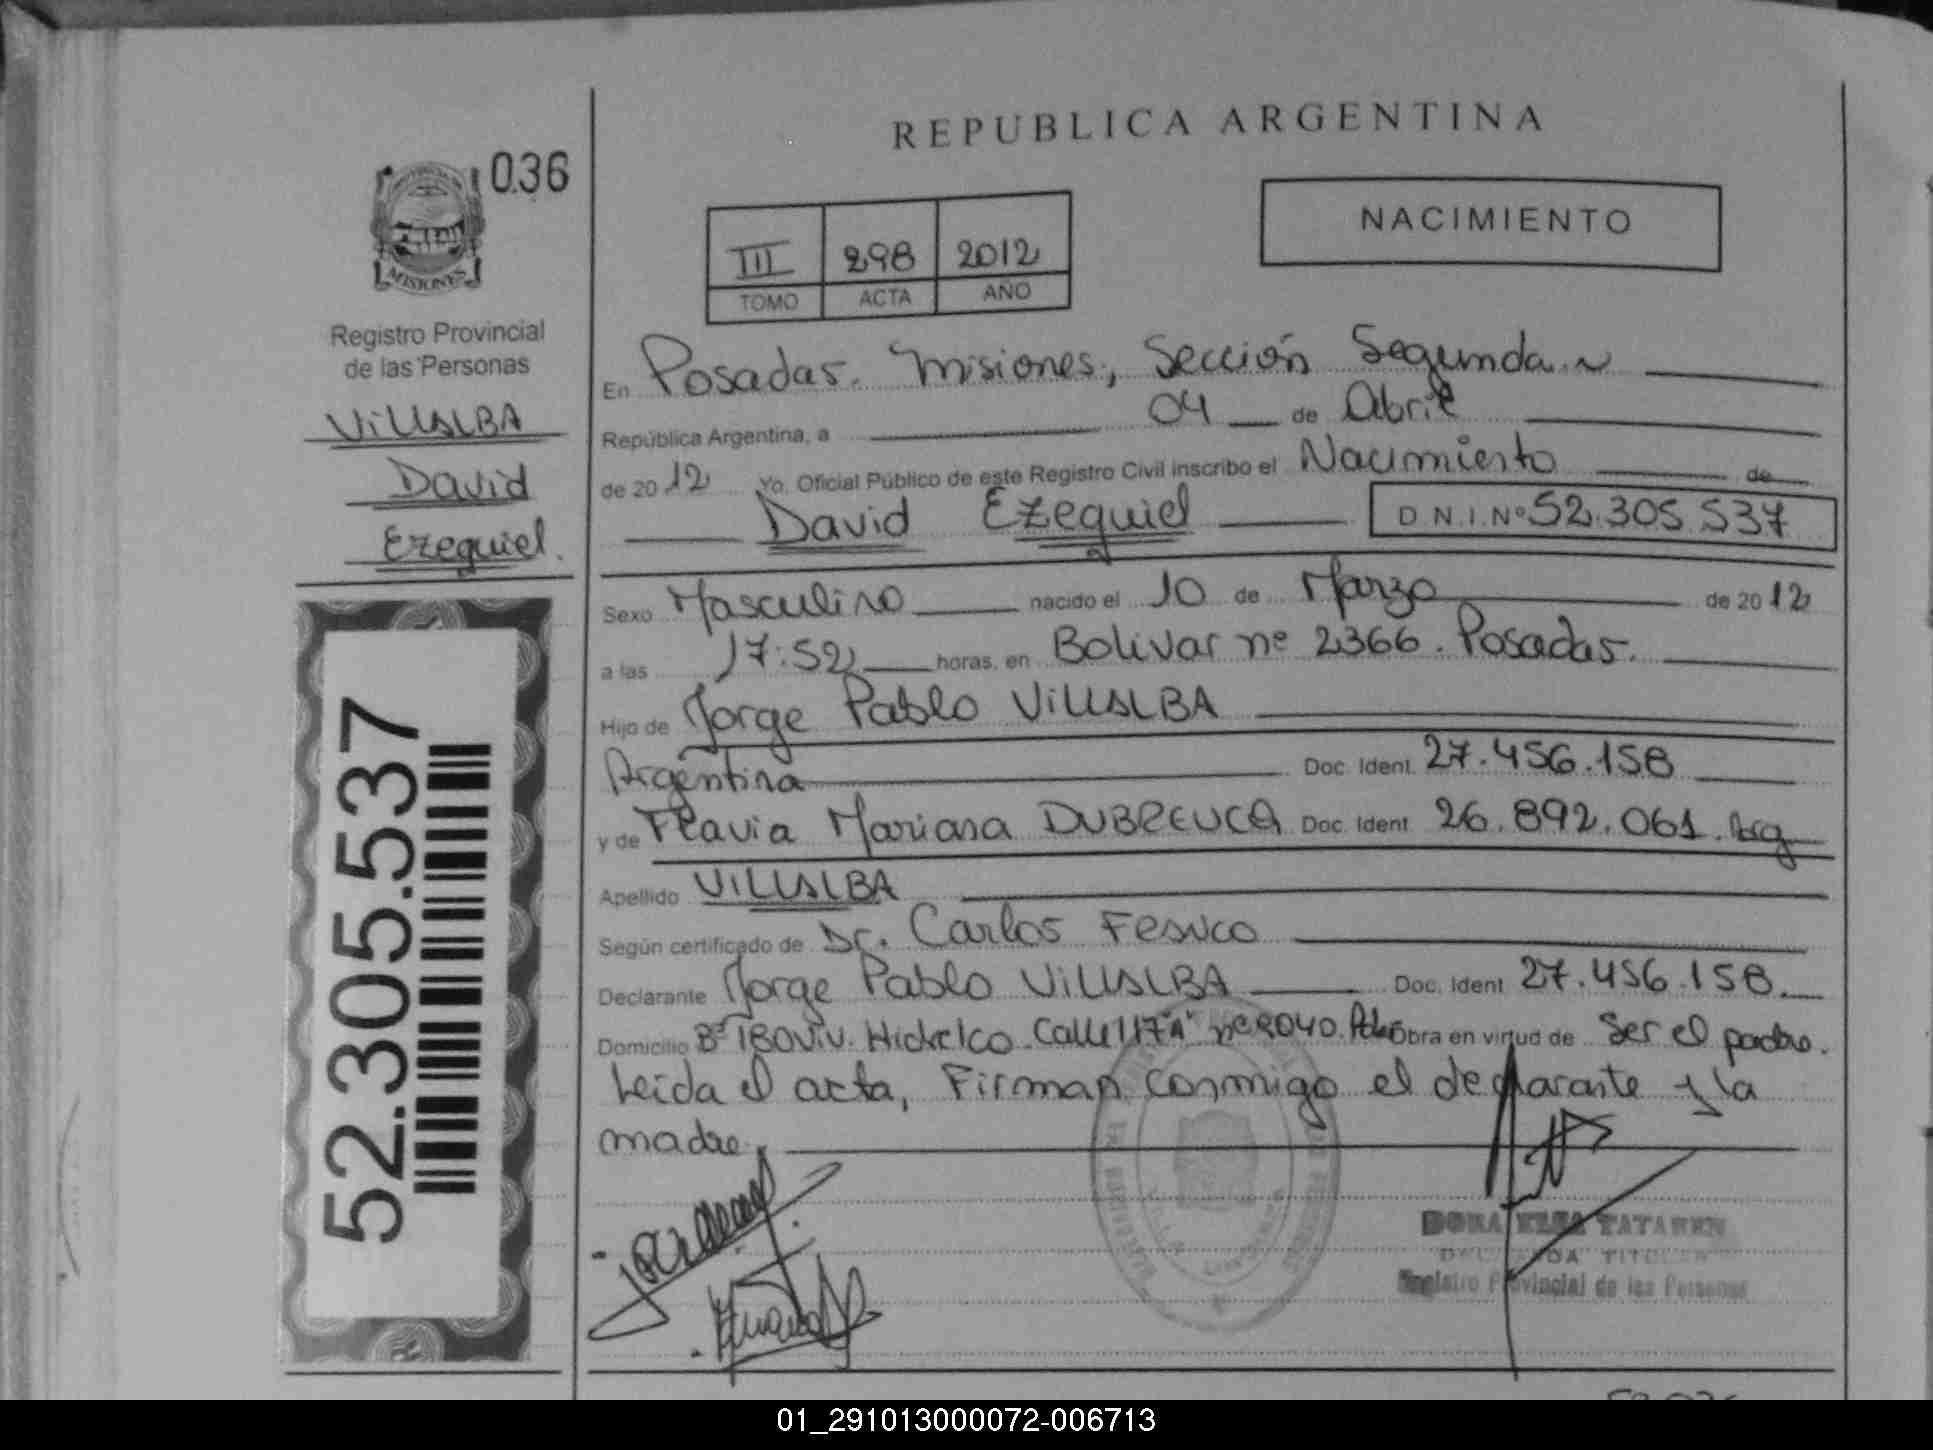 REPUBLICA ARGENTINA
036
NACIMIENTO
III 298 2012
TOMO ACTA AÑO
MISIONES
Registro Provincial
de las Personas
VILLALBA
David
Ezequiel.
52.305.537
En Posadas. Misiones, Sección Segunda
República Argentina, a 04 de Abril
de 2012 Yo, Oficial Público de este Registro Civil inscribo el Nacimiento de
David Ezequiel D.N.I.Nº 52.305.537
Sexo Masculino nacido el 10 de Marzo de 2012
a las 17:52 horas, en Bolivar nº 2366. Posadas.
Hijo de Jorge Pablo VILLALBA
Argentina Doc. Ident. 27.456.158
y de Flavia Mariana Doc. Ident. 26.892.061. Arg
Apellido VILLALBA
Según certificado de Dr. Carlos
Declarante Jorge Pablo VILLALBA Doc. Ident. 27.456.158.
Domicilio Bº 180 Viv. Calle 117"A" nº Obra en virtud de ser el padre.
Leida el acta, Firman conmigo el declarante y la
madre.
DORA ELSA
Registro Provincial de las Personas
01_291013000072-006713